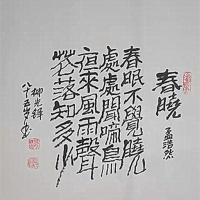 春曉
孟浩然
春眠不覺曉
處處聞啼鳥
夜來風雨聲
花落知多少
柳光輝